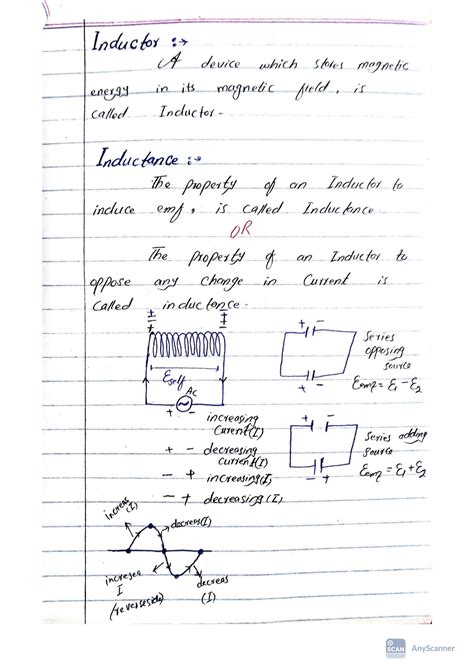 Inductor :→
A device which stores magnetic
energy in its magnetic field, is
called Inductor.
Inductance :→
The property of an Inductor to
induce emf, is called Inductance
OR
The property of an Inductor to
oppose any change in Current is
Called inductance.
+ -
Series
opposing
source
Eself
AC
+ -
Ecomp = E1 - E2
+ - increasing
Current(I)
+ - decreasing
current(I)
- + increasing(I)
- + decreasing(I)
+ -
Series adding
source
+ -
Ecomp = E1 + E2
increas
(I)
decreas(I)
increases
I
(reverseside)
decreas
(I)
SCAN AnyScanner